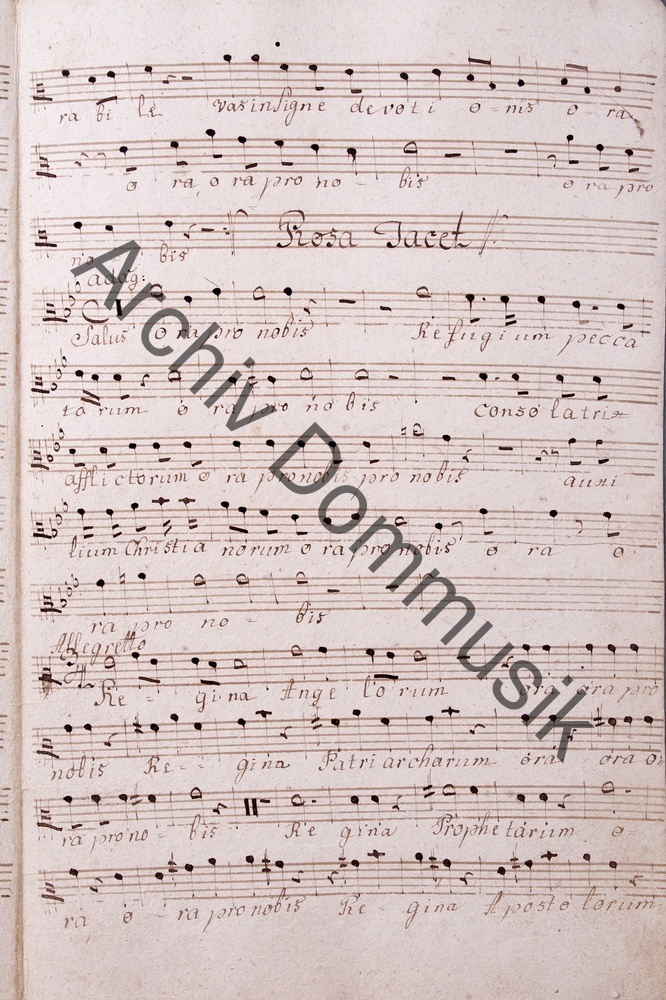 ra bi le vas insigne devoti o-nis o-ra
o ra, o ra pro no-bis o ra pro
no bis Rosa Tacet
adag:
Salus o ra pro nobis Refugium pecca
torum o ra pro no bis consolatrix
afflictorum o ra pro nobis pro nobis auxi
lium Christia norum o ra pro nobis o ra o
ra pro no-bis
Allegretto
Re-gina Angelorum ora ora pro
nobis Re--gina Patriarcharum ora ora o
ra pro no-bis Re gina Prophetarum o-
ra o-ra pro nobis Re-gina Apostolorum
Archiv Dommusik